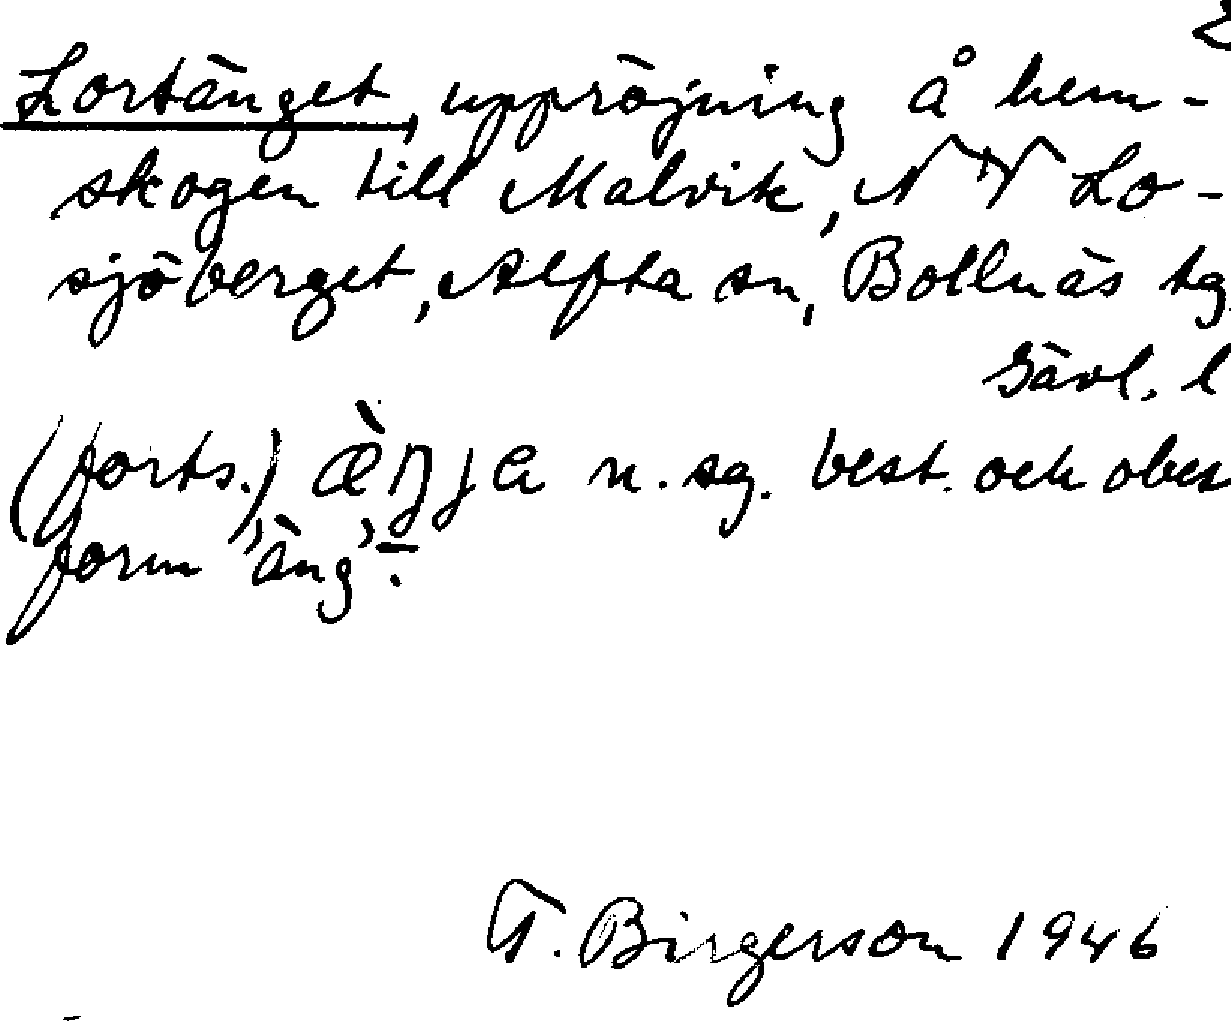 2
Lortänget, uppröjning å hem-
skogen till Malvik, NV Lo-
sjöberget, Alfta sn, Bollnäs tg
Gävl. l
(forts.) æ̀ŋja n. sg. best. och obes
form 'äng'-.
T. Birgerson 1946